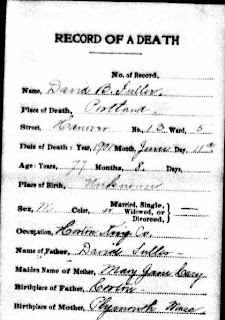 RECORD OF A DEATH
No. of Record,
Name, David B. Fuller
Place of Death, Portland
Street, Hanover No, 13 Ward, 5
Date of Death: Year, 1901 Month, June Day, 11th
Age: Years, 77 Months, 8 Days,
Place of Birth, Unknown
Sex, M Color, w Married, Single, Widowed, or Divorced,
Occupation,
Name of Father, David Fuller
Maiden Name of Mother, Mary Jane
Birthplace of Father,
Birthplace of Mother, Plymouth Mass